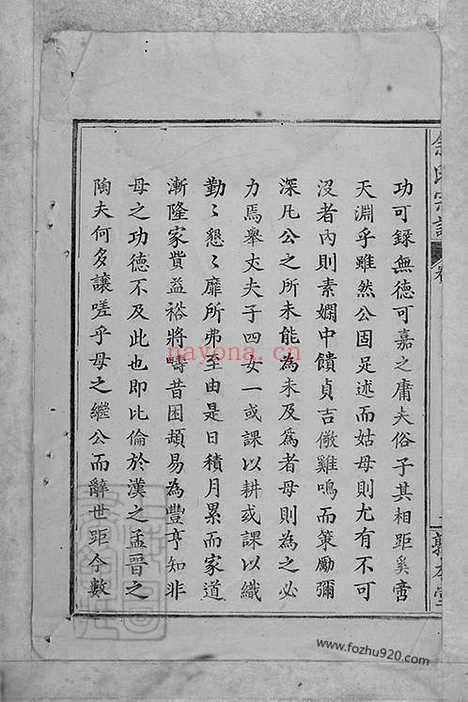 功可錄無德可嘉之庸夫俗子其相距奚啻
天淵乎雖然公固足述而姑母則尤有不可
沒者內則素嫻中饋貞吉儆雞鳴而策勵彌
深凡公之所未能為未及為者母則為之必
力焉舉丈夫子四女一或課以耕或課以織
勤〻懇〻靡所弗至由是日積月累而家道
漸隆家貲益裕將疇昔困頓易為豐亨知非
母之功德不及此也即比倫於漢之孟晉之
陶夫何多讓嗟乎母之繼公而辭世距今數
nayona.cn
www.fozhu920.com